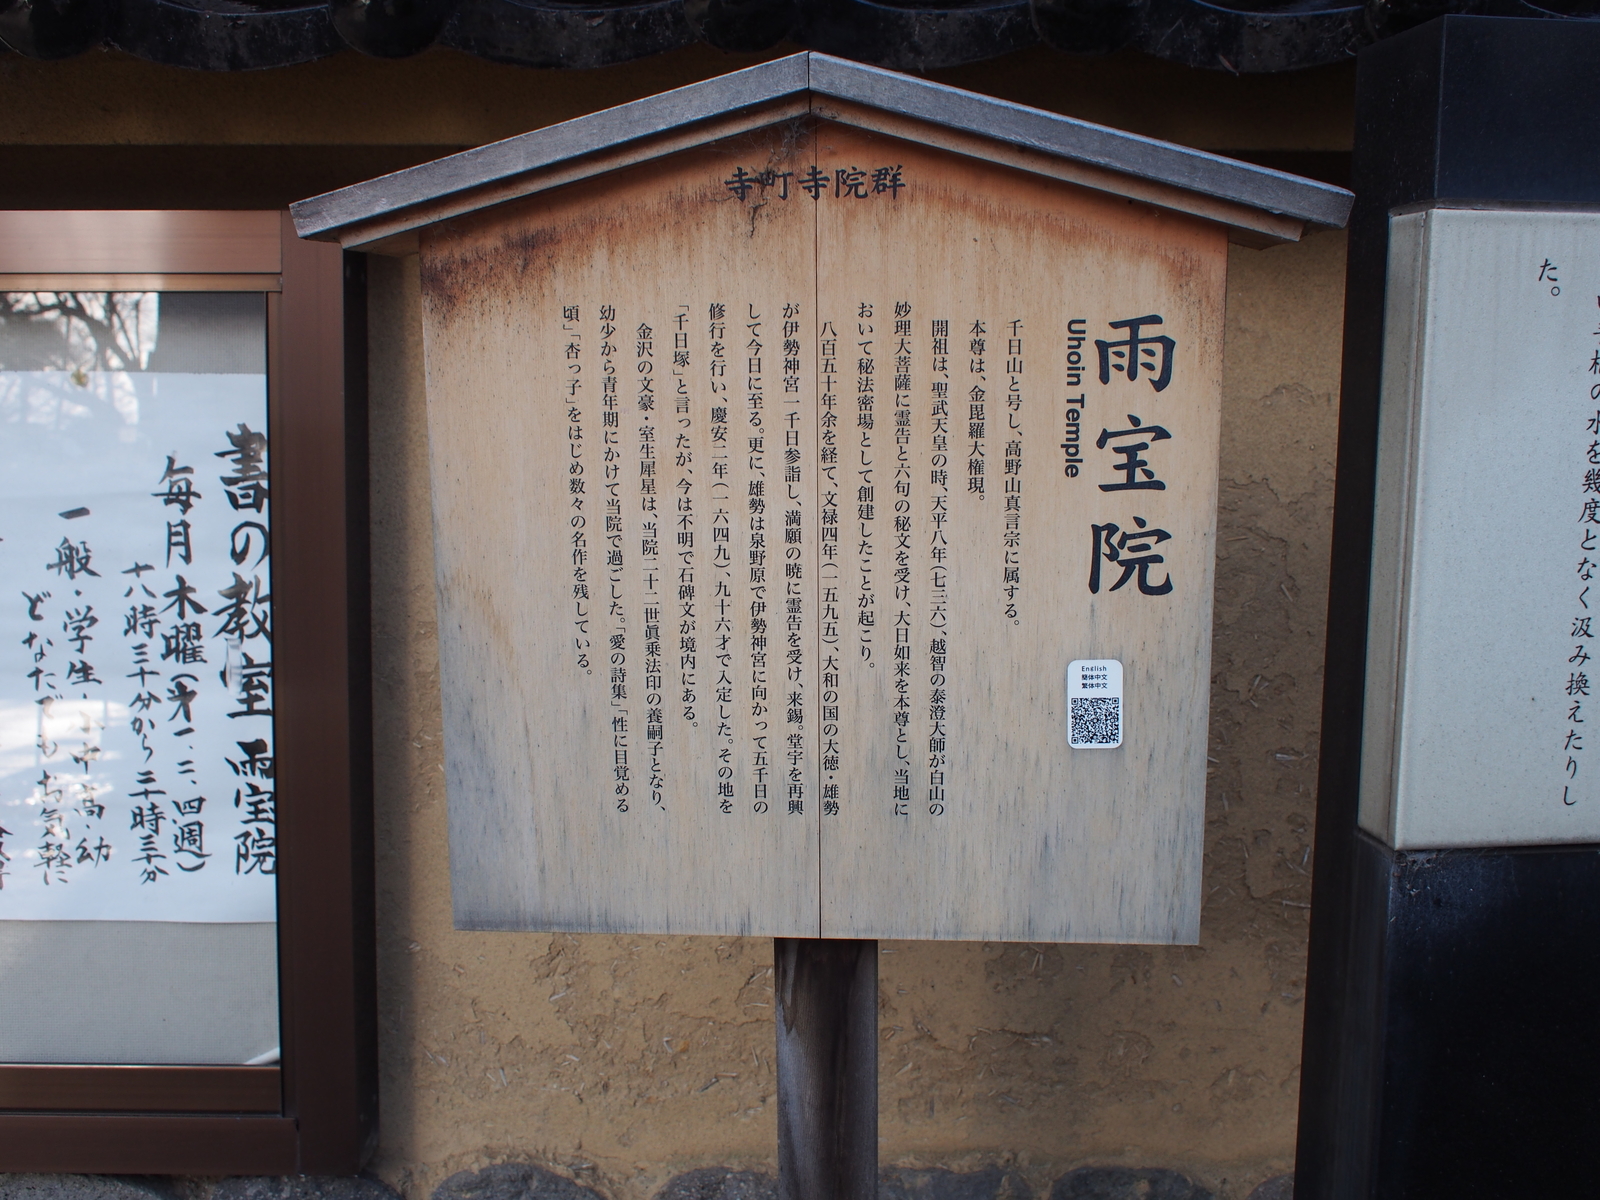 寺町寺院群
雨宝院
Uhoin Temple
English
簡体中文
繁体中文
千日山と号し、高野山真言宗に属する。
本尊は、金毘羅大権現。
開祖は、聖武天皇の時、天平八年(七三六)、越智の泰澄大師が白山の
妙理大菩薩に霊告と六句の秘文を受け、大日如来を本尊とし、当地に
おいて秘法密場として創建したことが起こり。
八百五十年余を経て、文禄四年(一五九五)、大和の国の大徳・雄勢
が伊勢神宮一千日参詣し、満願の暁に霊告を受け、来錫。堂宇を再興
して今日に至る。更に、雄勢は泉野原で伊勢神宮に向かって五千日の
修行を行い、慶安二年(一六四九)、九十六才で入定した。その地を
「千日塚」と言ったが、今は不明で石碑文が境内にある。
金沢の文豪・室生犀星は、当院二十二世眞乗法印の養嗣子となり、
幼少から青年期にかけて当院で過ごした。「愛の詩集」「性に目覚める
頃」「杏っ子」をはじめ数々の名作を残している。
書の教室 雨宝院
毎月木曜(才一、二、四週)
十八時三十分から二十時三十分
一般・学生・小中高・幼
どなたでもお気軽に
の水を幾度となく汲み換えたりし
た。